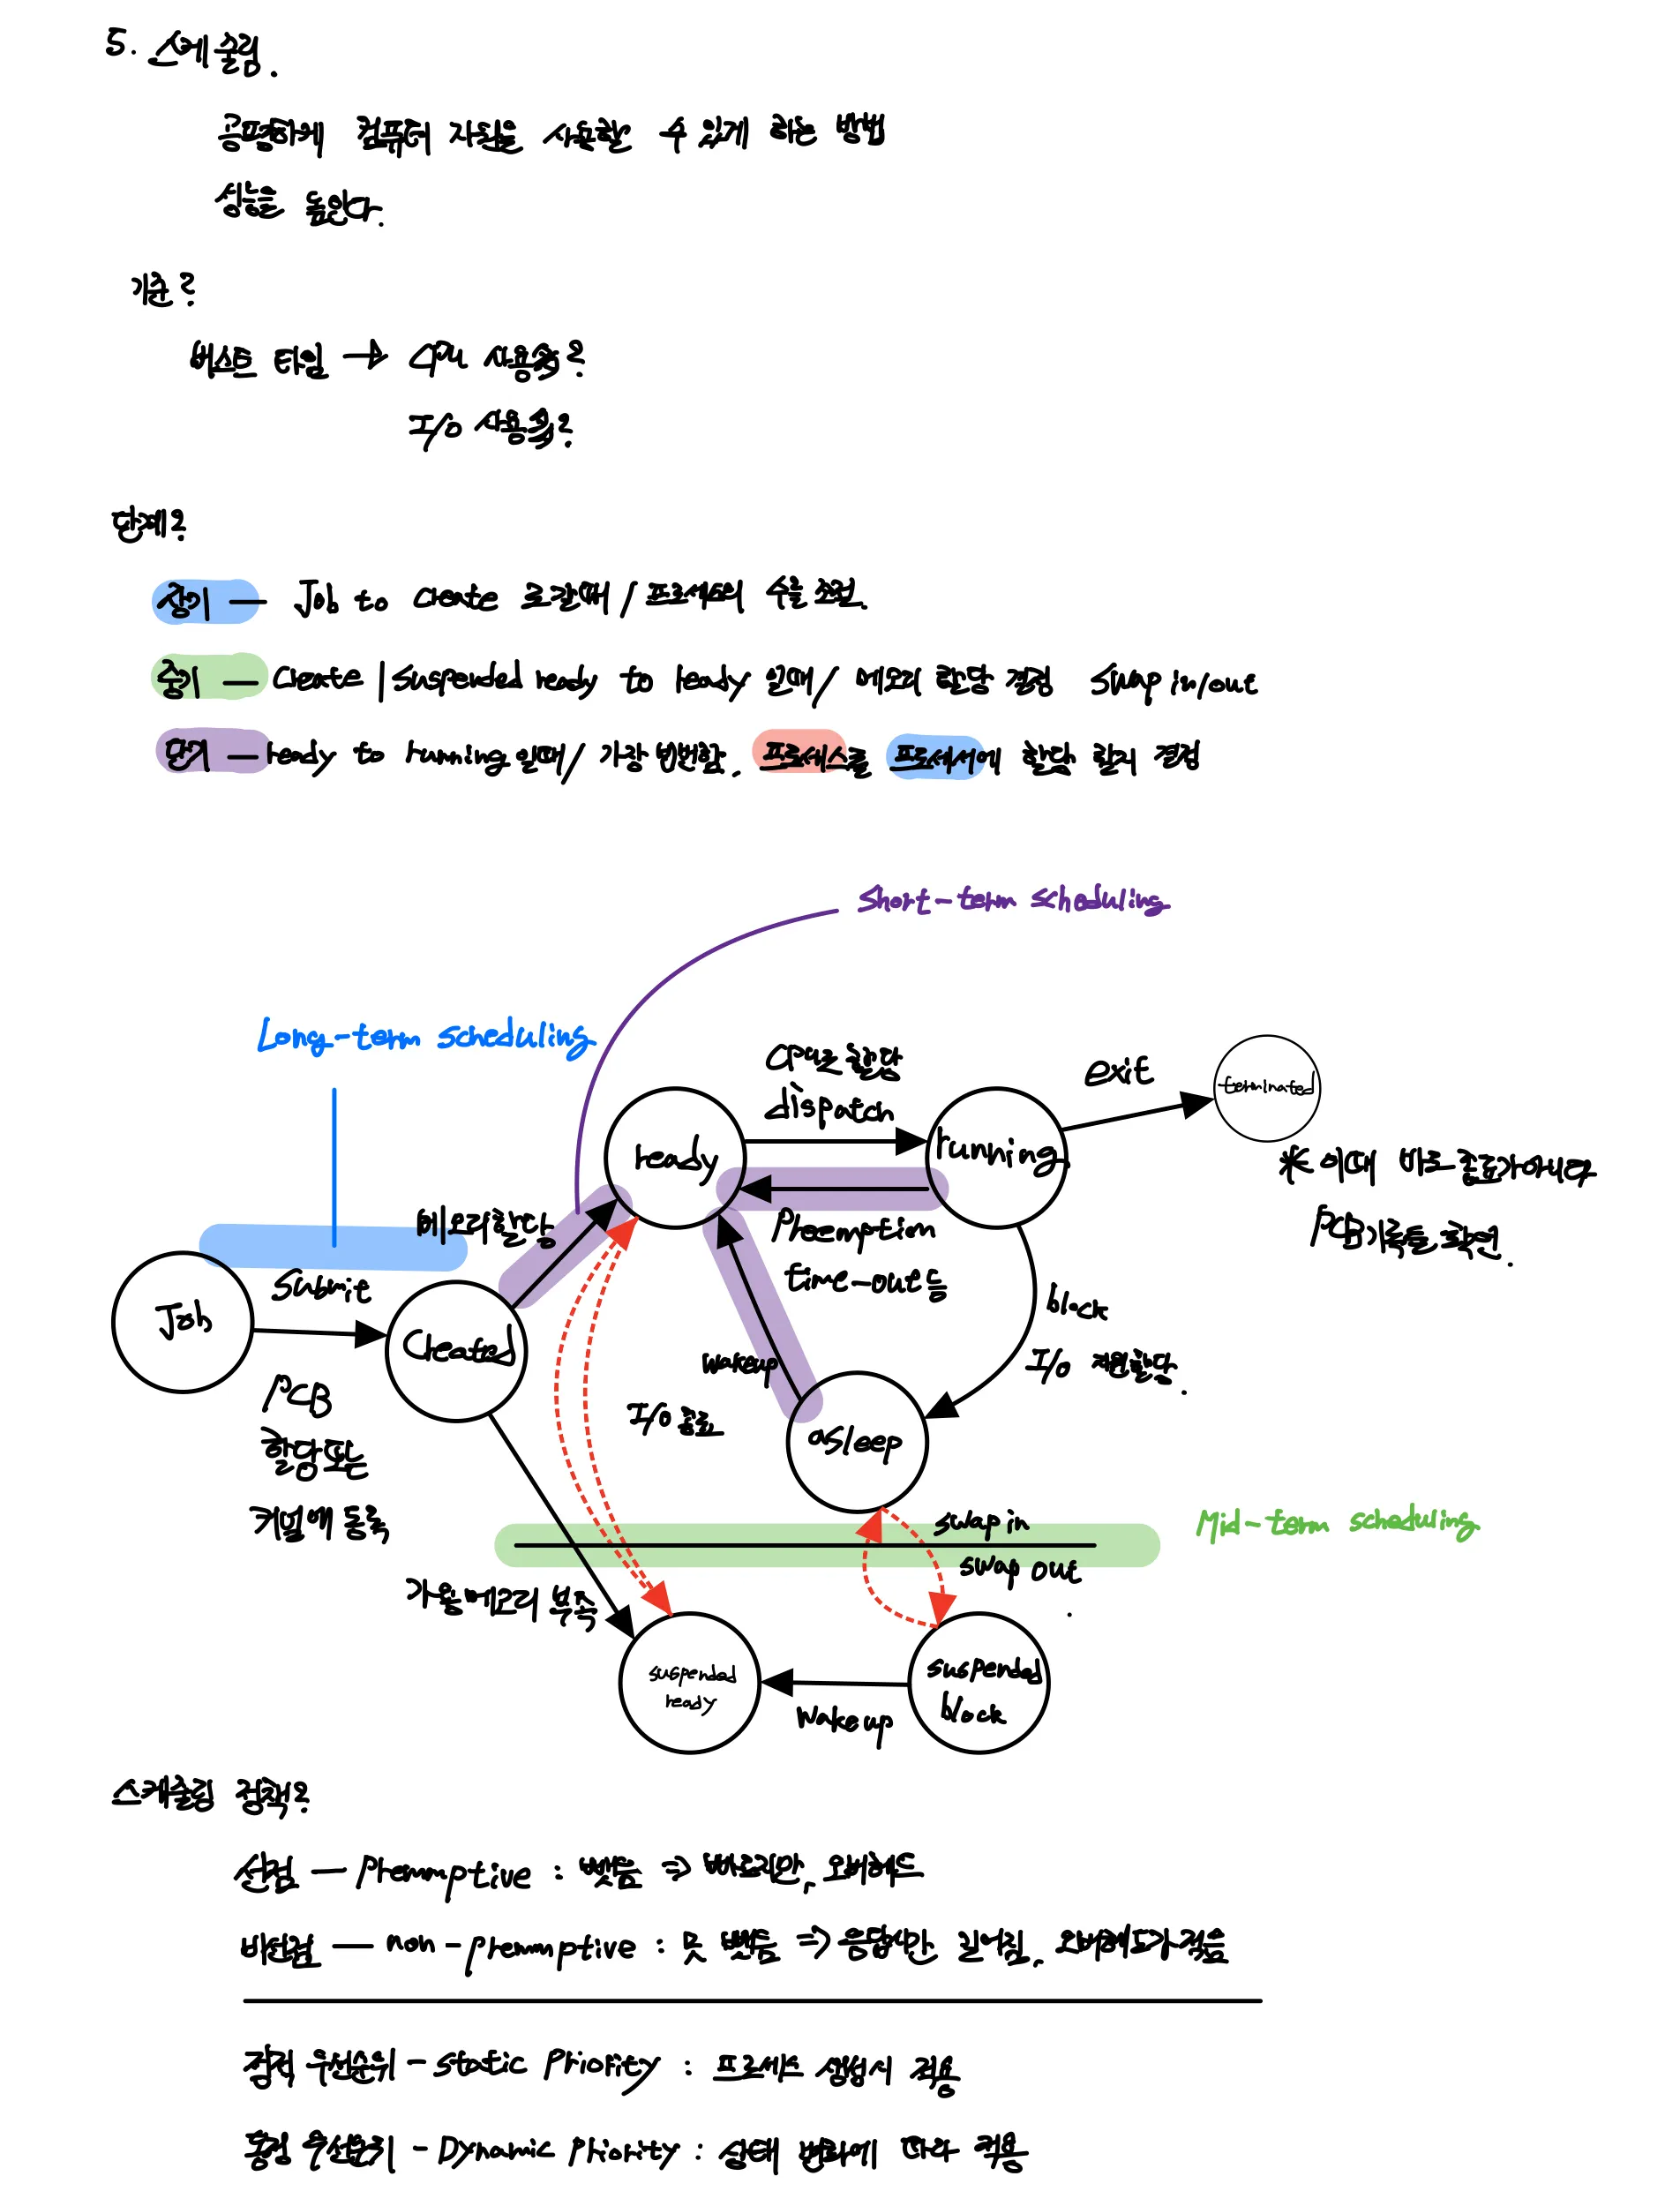 5. 스케쥴링.
공평하게 컴퓨터 자원을 사용할 수 있게 하는 방법
성능을 높인다.
기준?
버스트 타임 → CPU 사용률?
I/O 사용률?
단계?
장기 — Job to Create 로 갈때 / 프로세스의 수를 조절.
중기 — Create | suspended ready to ready 일때 / 메모리 할당 결정 swap in/out
단기 — ready to running 일때 / 가장 빈번함. 프로세스를 프로세서에 할당 할지 결정
Short-term scheduling
Long-term scheduling
CPU로 할당
dispatch
exit
terminated
ready
running
※ 이때 바로 종료가 아니다
PCB 기록들 확인.
메모리할당
Preemption
time-out 등
submit
Job
Created
block
I/O 자원할당.
wakeup
I/O 종료
asleep
PCB
할당 또는
커널에 등록
swap in
Mid-term scheduling
swap out
가용메모리 부족
suspended
ready
suspended
block
Wakeup
스케쥴링 정책?
선점 — Premmptive : 뺏음 => 빠르지만, 오버헤드
비선점 — non-premmptive : 못 뺏음 => 응답시간 길어짐, 오버헤드가 적음
정적 우선순위 - Static Priority : 프로세스 생성시 적용
동적 우선순위 - Dynamic Priority : 상태 변화에 따라 적용